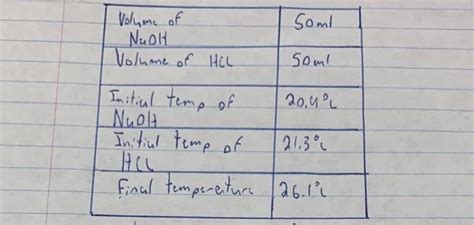 Volume of
NaOH
50ml
Volume of HCl
50ml
Initial temp of
NaOH
20.4°C
Initial temp of
HCl
21.3°C
Final temperature
26.1°C